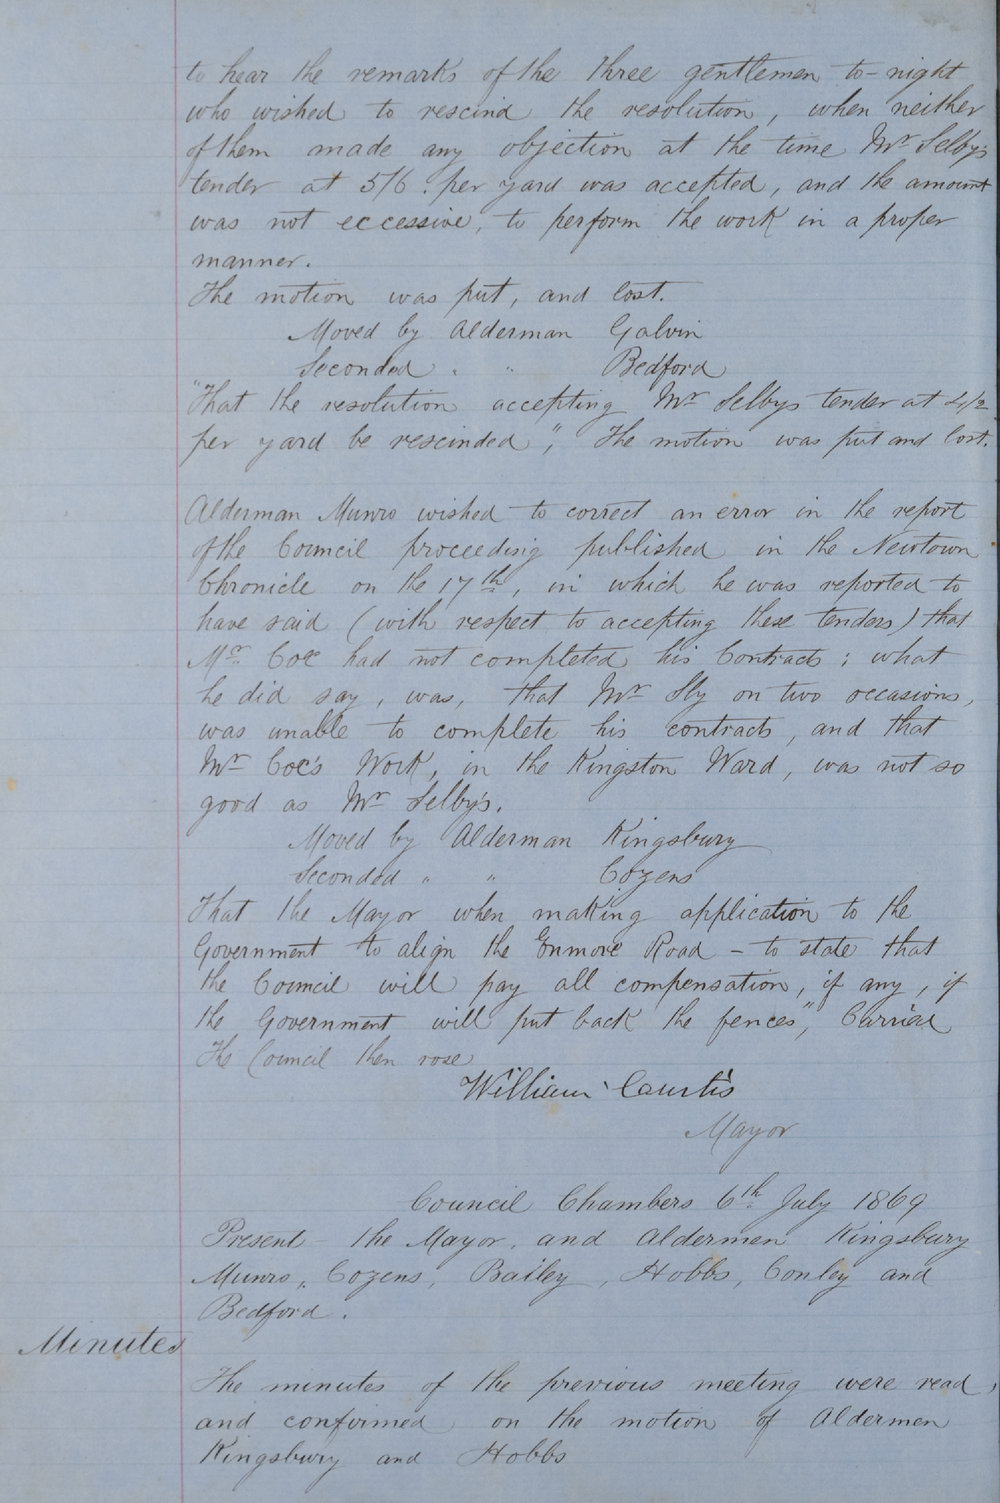 to hear the remarks of the three gentlemen to-night
who wished to rescind the resolution, when neither
of them made any objection at the time Mr Selby's
tender at 5/6. per yard was accepted, and the amount
was not eccessive, to perform the work in a proper
manner.
The motion was put, and lost.
Moved by Alderman Galvin
Seconded " " Bedford
"That the resolution accepting Mr Selbys tender at 4/2
per yard be rescinded", The motion was put and lost.
Alderman Munro wished to correct an error in the report
of the Council proceeding published in the Newtown
Chronicle on the 17th, in which he was reported to
have said (with respect to accepting these tenders) that
Mr Coe had not completed his Contracts; what
he did say, was, that Mr Sly on two occasions,
was unable to complete his contracts, and that
Mr Coe's Work, in the Kingston Ward, was not so
good as Mr Selby's.
Moved by Alderman Kingsbury
Seconded " " Cozens
That the Mayor when making application to the
Government to align the Enmore Road - to state that
the Council will pay all compensation, if any, if
the Government will put back the fences", Carried
The Council then rose
William Curtis
Mayor
Council Chambers 6th July 1869
Present - the Mayor, and Aldermen Kingsbury
Munro, Cozens, Bailey, Hobbs, Conley and
Bedford.
Minutes
The minutes of the previous meeting were read,
and confirmed on the motion of Aldermen
Kingsbury and Hobbs